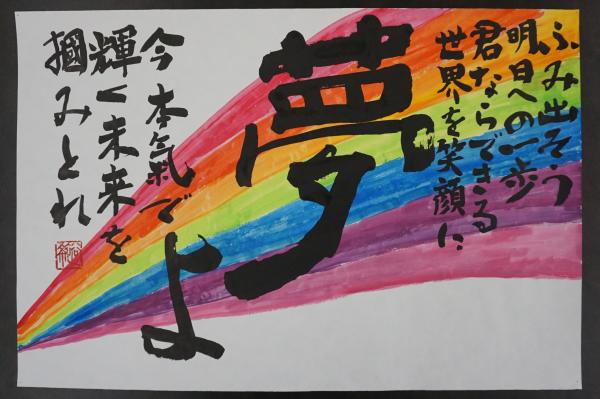 ふみ出そう
明日への一歩
君ならできる
世界を笑顔に
夢
よ
今本氣で
輝く未来を
掴みとれ